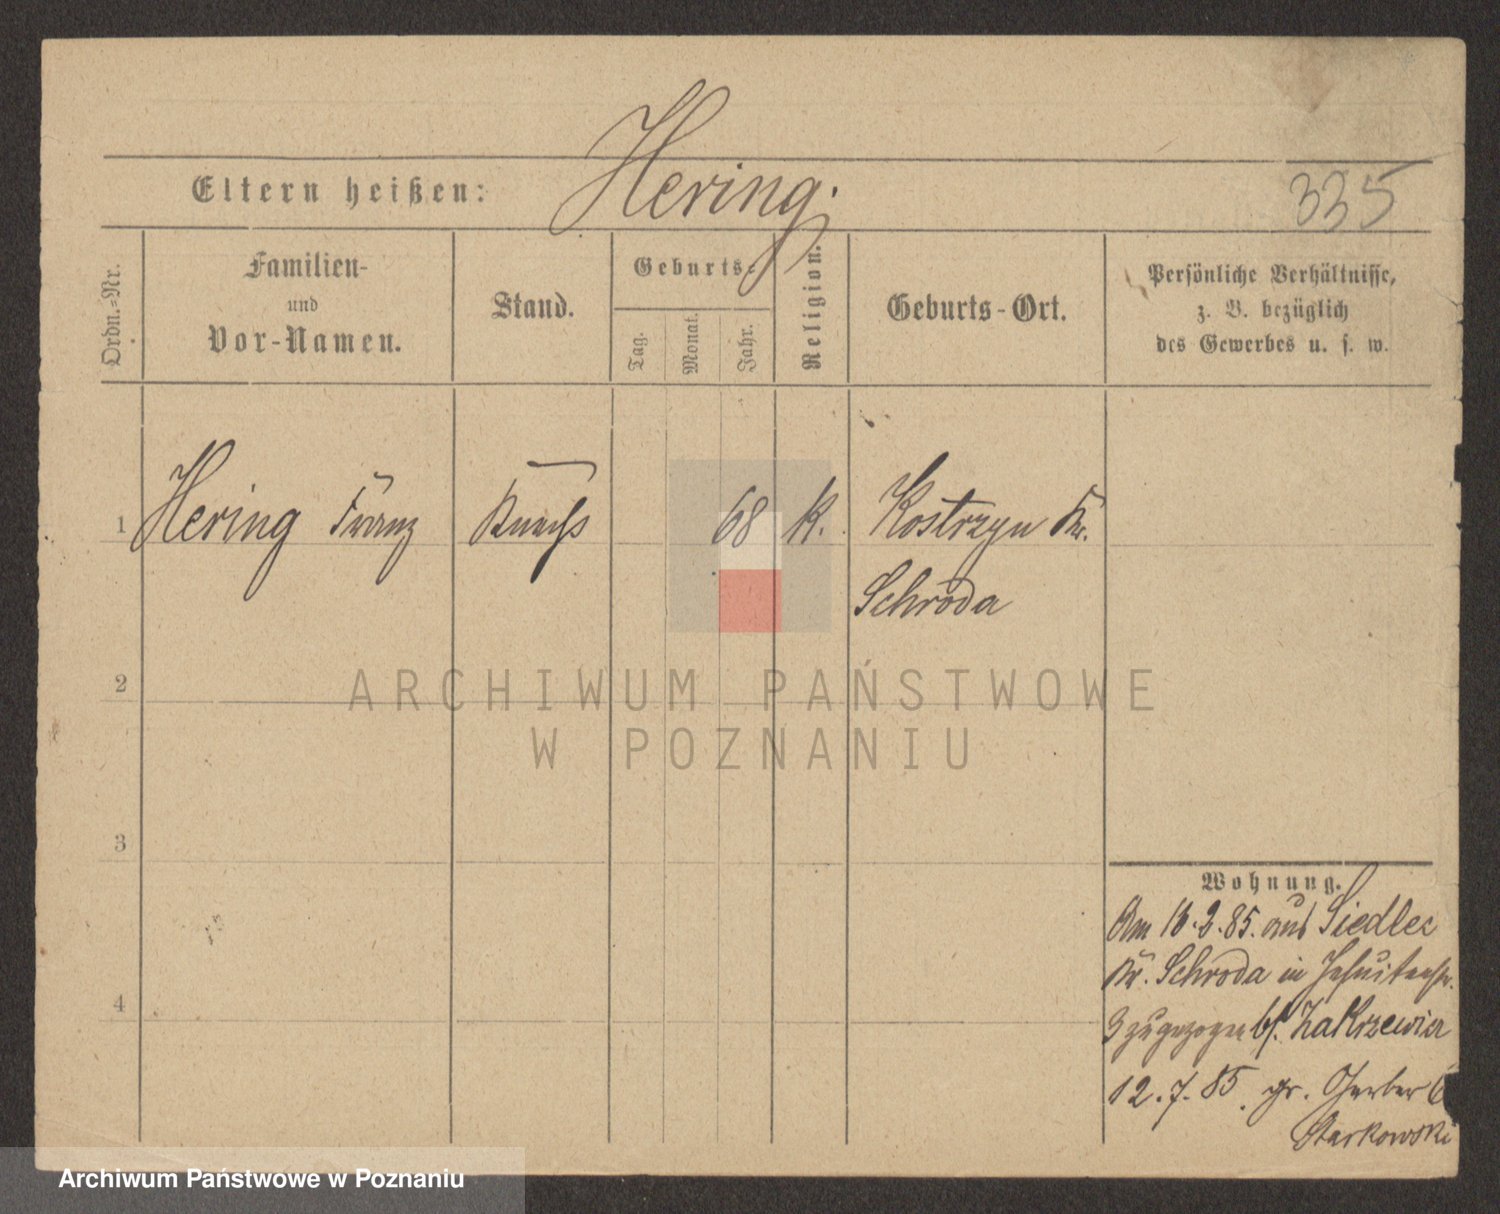 Hering.
Eltern heißen:
335
Ordn.-Nr.
Familien-
und
Vor-Namen.
Stand.
Geburts-
Tag.
Monat.
Jahr.
Religion.
Geburts-Ort.
Persönliche Verhältnisse,
z. B. bezüglich
des Gewerbes u. s. w.
1
Hering Franz
Knecht
68
K.
Kostrzyn Kr.
Schroda
2
ARCHIWUM PAŃSTWOWE
W POZNANIU
3
4
Wohnung.
Am 16.2.85. aus Siedlec
Kr. Schroda in Jesuitenstr.
3 zugezogen bf.
12.7.85. gr. Gerber 6
Starkowski
Archiwum Państwowe w Poznaniu